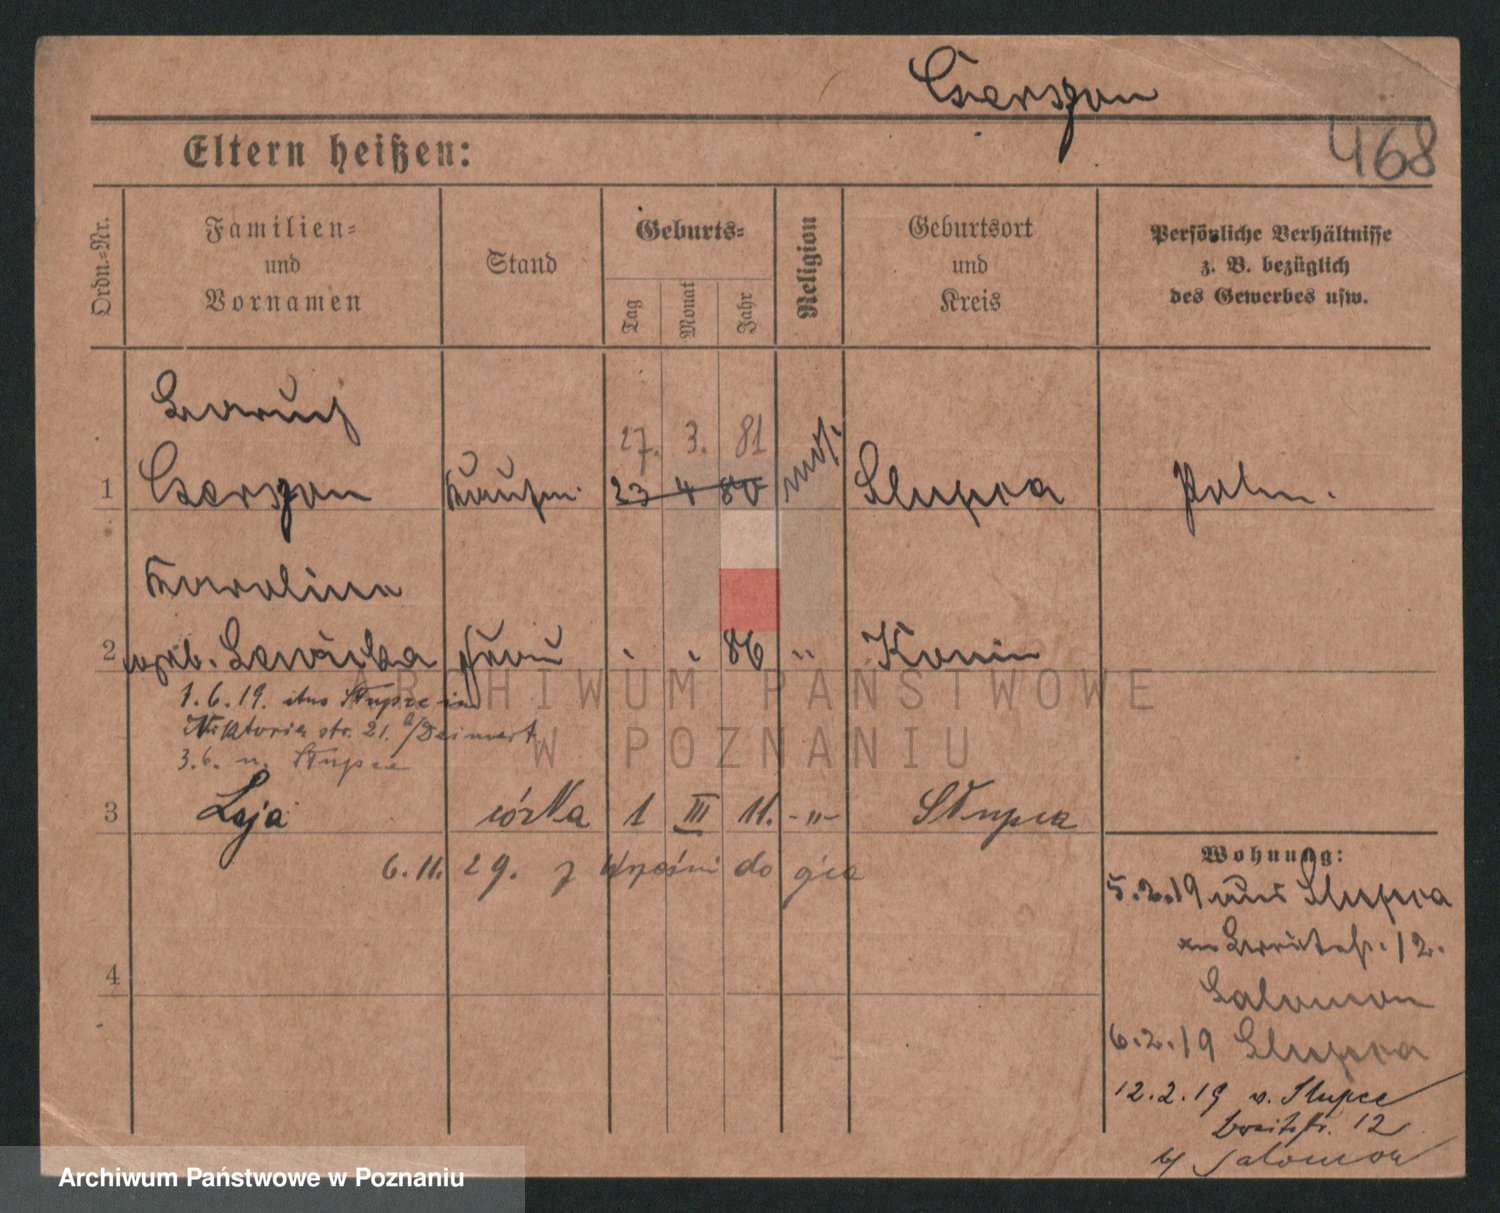 Czerszon
468
Eltern heißen:
Ordn.-Nr.
Familien-
und
Vornamen
Stand
Geburts-
Tag
Monat
Jahr
Religion
Geburtsort
und
Kreis
Persönliche Verhältnisse
z. B. bezüglich
des Gewerbes usw.
Baruch
27. 3. 81
1 Kaufm. 23 4 80 mos. Slupca Polen.
Karolina
2 geb. Frau " " 86 " Konin
1.6.19. aus Słupce in
Viktoria str. 21.
3.6. n. Słupce
3 Laja córka 1 III 11. -"- Słupca
6.11.29. z Wrześni do
4
Wohnung:
5.2.19 aus Slupca
Breitestr. 12.
Salomon
6.2.19 Slupca
12.2.19 v. Slupce
Breitestr. 12
b/ Salomon
ARCHIWUM PAŃSTWOWE
W POZNANIU
Archiwum Państwowe w Poznaniu